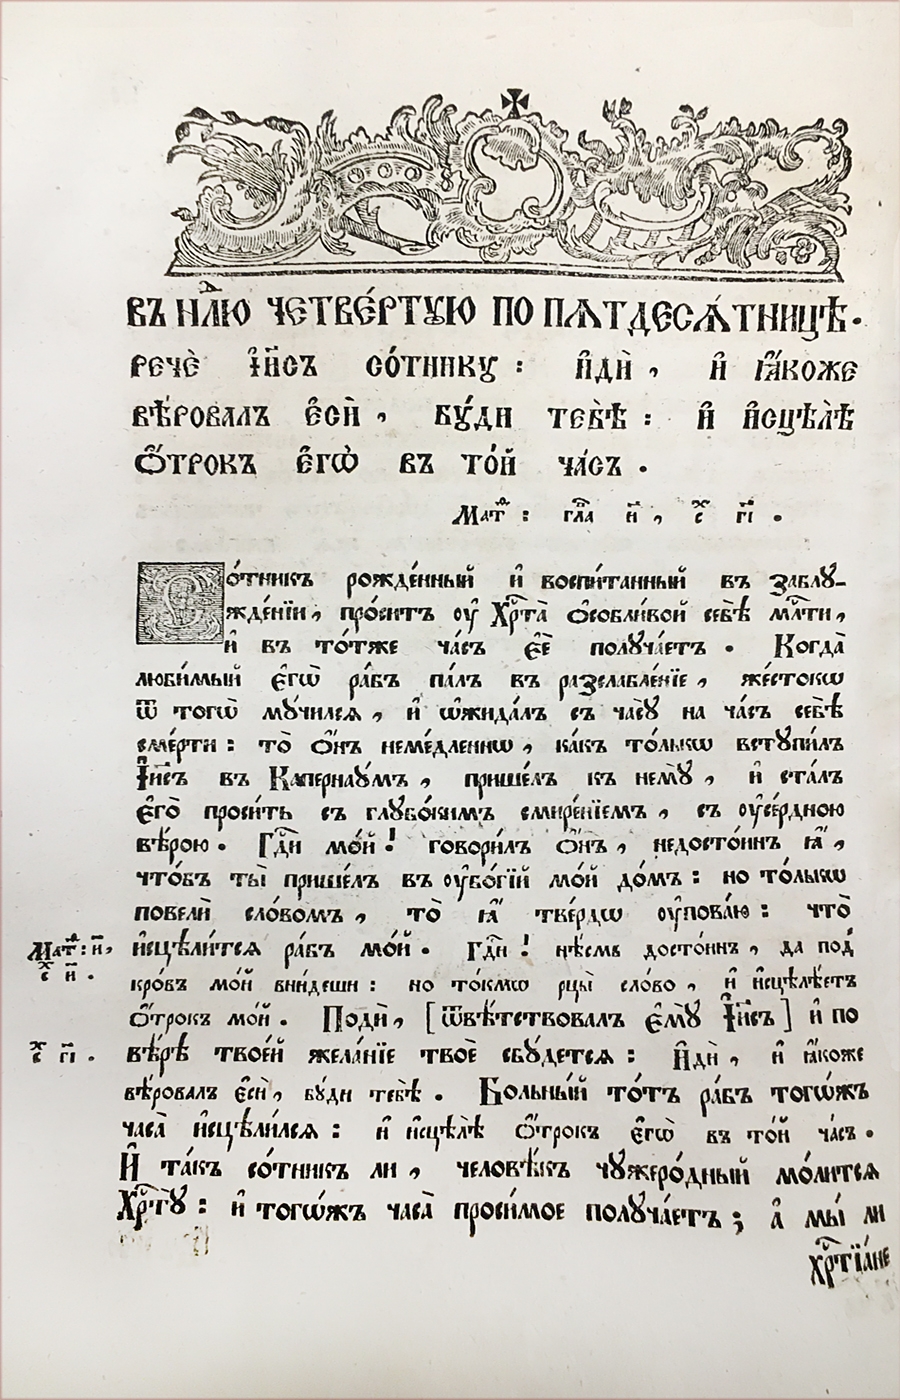 ВЪ Н҃ЛЮ ЧЕТВЕ́РТꙋЮ ПО ПѦТДЕСѦ́ТНИЦѢ.
РЕЧЀ І҆И҃СЪ СО́ТНИКꙋ : И҆Дѝ , И҆ ꙗ҆́КОЖЕ
ВѢ́РОВАЛЪ Е҆Сѝ , БꙋДИ ТЕБѢ̀ : И҆ И҆СЦѢЛѢ̀
Ѻ҆́ТРОКЪ Е҆ГѠ̀ ВЪ ТО́Й ЧА́СЪ .
Матѳ҃ : гла҃ и҃ , с҃х г҃і .
Со́тникъ рожде́нный и҆ воспи́танный въ заблꙋ-
жде́нїи , про́ситъ оу҆ Хрⷭ҇та̀ ѻ҆собли́вой себѣ̀ ми́лⷭ҇ти ,
и҆ въ то́тже ча́съ є҆ѐ полꙋча́етъ . Когда̀
люби́мый є҆гѡ̀ ра́бъ па́лъ въ разслабле́нїе , же́стокѡ
ѿ тогѡ̀ мꙋ́чился , и҆ ѡ҆жида́лъ съ ча́сꙋ на ча́съ себѣ̀
сме́рти : то̀ ѻ҆́нъ неме́дленнѡ , ка́къ то́лькѡ встꙋпи́лъ
І҆и҃съ въ Капернаꙋ́мъ , прише́лъ къ немꙋ̀ , и҆ ста́лъ
є҆го̀ проси́ть съ глꙋбо́кимъ смире́нїемъ , съ оу҆се́рдною
вѣ́рою . Гдⷭ҇и мо́й ! говори́лъ ѻ҆́нъ , недосто́инъ ꙗ҆̀ ,
что́бъ ты̀ прише́лъ въ оу҆бо́гїй мо́й до́мъ : но то́лькѡ
повелѝ сло́вомъ , то̀ ꙗ҆̀ тве́рдѡ оу҆пова́ю : что̀
Матѳ҃ : и҃ , с҃х и҃ .
и҆сцѣли́тся ра́бъ мо́й . Гдⷭ҇и ! нѣ́смь досто́инъ , да под̾
кро́въ мо́й вни́деши : но то́кмѡ рцы̀ сло́во , и҆ и҆сцѣлѣ́етъ
ѻ҆́трокъ мо́й . Подѝ , [ ѿвѣ́тствовалъ є҆мꙋ̀ І҆и҃съ ] и҆ по
с҃х г҃і .
вѣ́рѣ твое́й жела́нїе твоѐ сбꙋ́дется : И҆дѝ , и҆ ꙗ҆́коже
вѣ́ровалъ є҆сѝ , бꙋ́ди тебѣ̀ . Больны́й то́тъ ра́бъ тогѡ́жъ
часа̀ и҆сцѣли́лся : и҆ и҆сцѣлѣ̀ ѻ҆́трокъ є҆гѡ̀ въ то́й ча́съ .
И҆ та́къ со́тникъ ли , человѣ́къ чꙋжеро́дный мо́лится
Хрⷭ҇тꙋ̀ : и҆ тогѡ́жъ часа̀ проси́мое полꙋча́етъ ; а҆ мы̀ ли
хрⷭ҇тїа́не